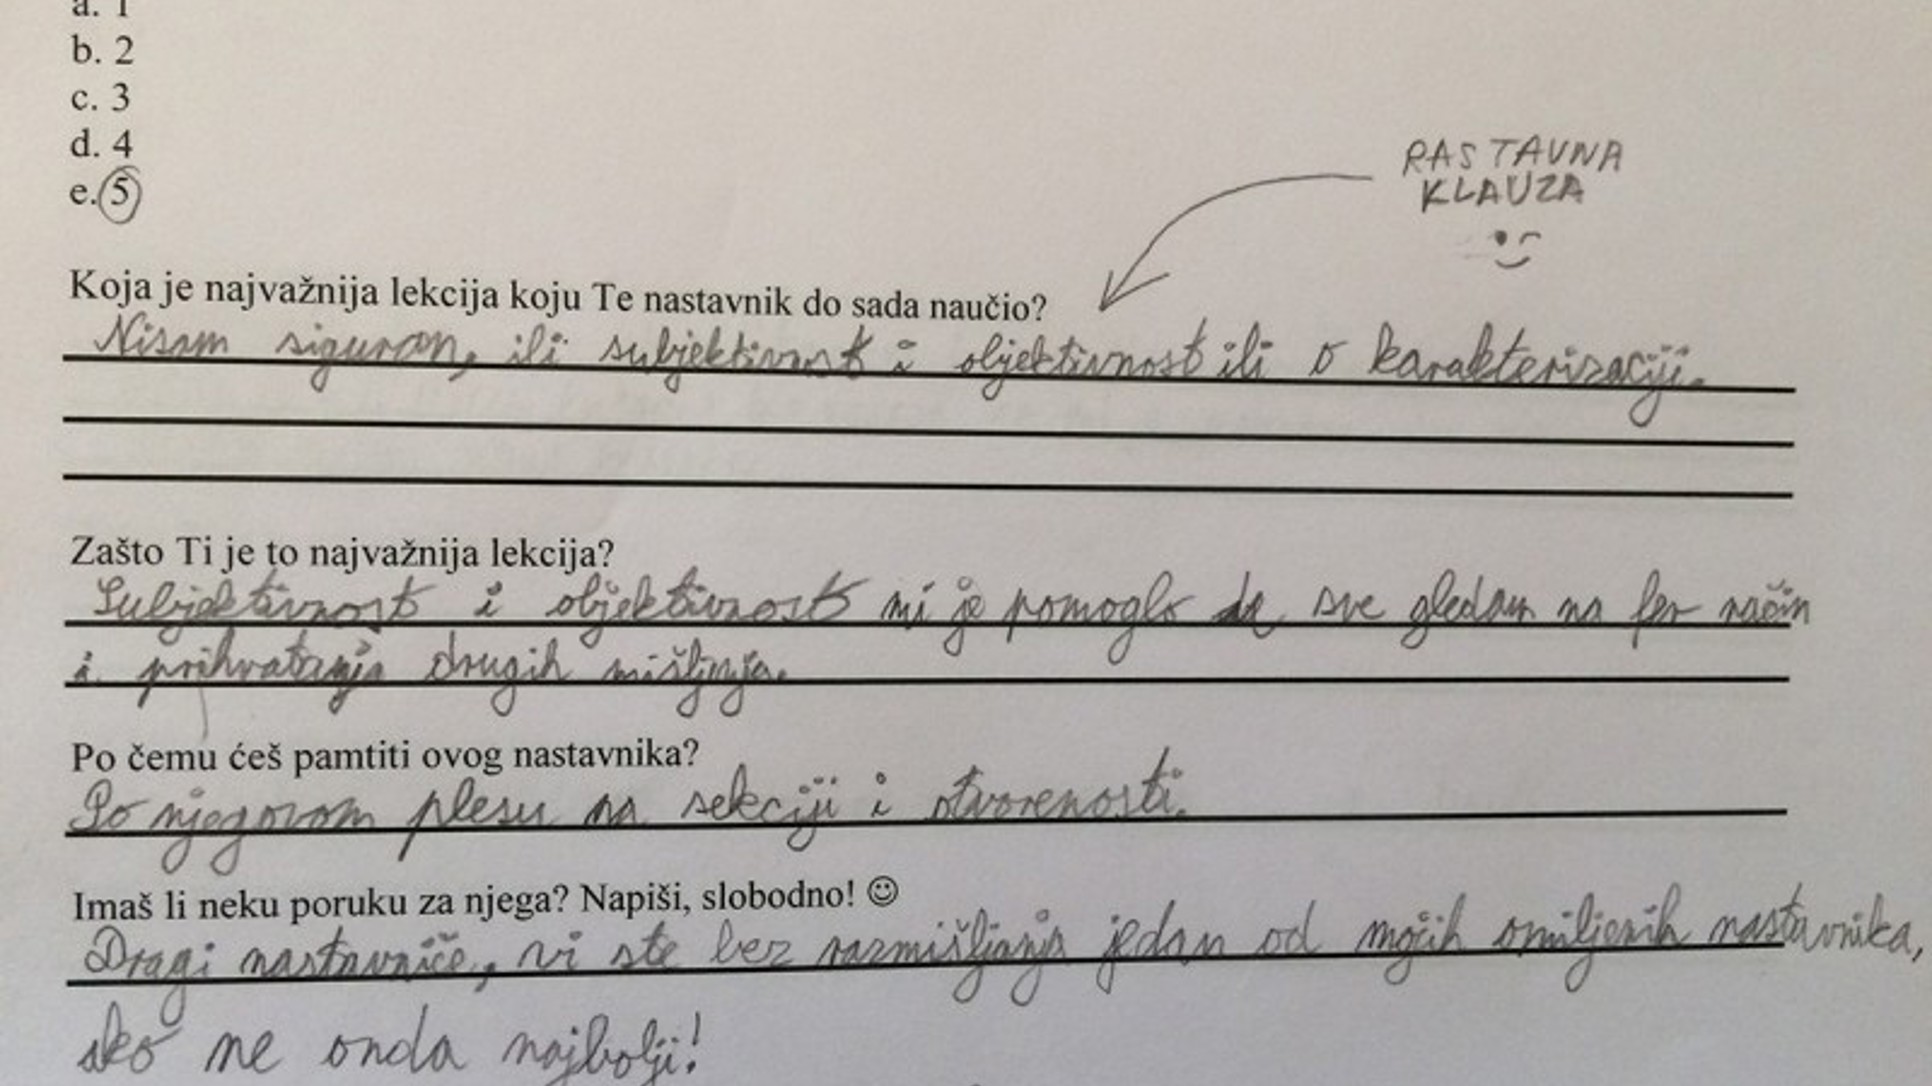 a. 1
b. 2
c. 3
d. 4
e. 5
RASTAVNA
KLAUZA
Koja je najvažnija lekcija koju Te nastavnik do sada naučio?
Nisam siguran, ili subjektivnost i objektivnost ili o karakterizaciji.
Zašto Ti je to najvažnija lekcija?
Subjektivnost i objektivnost mi je pomoglo da sve gledam na fer način
i prihvatanja drugih mišljenja.
Po čemu ćeš pamtiti ovog nastavnika?
Po njegovom plesu na sekciji i otvorenosti.
Imaš li neku poruku za njega? Napiši, slobodno! ☺
Dragi nastavniče, vi ste bez razmišljanja jedan od mojih omiljenih nastavnika,
ako ne onda najbolji!